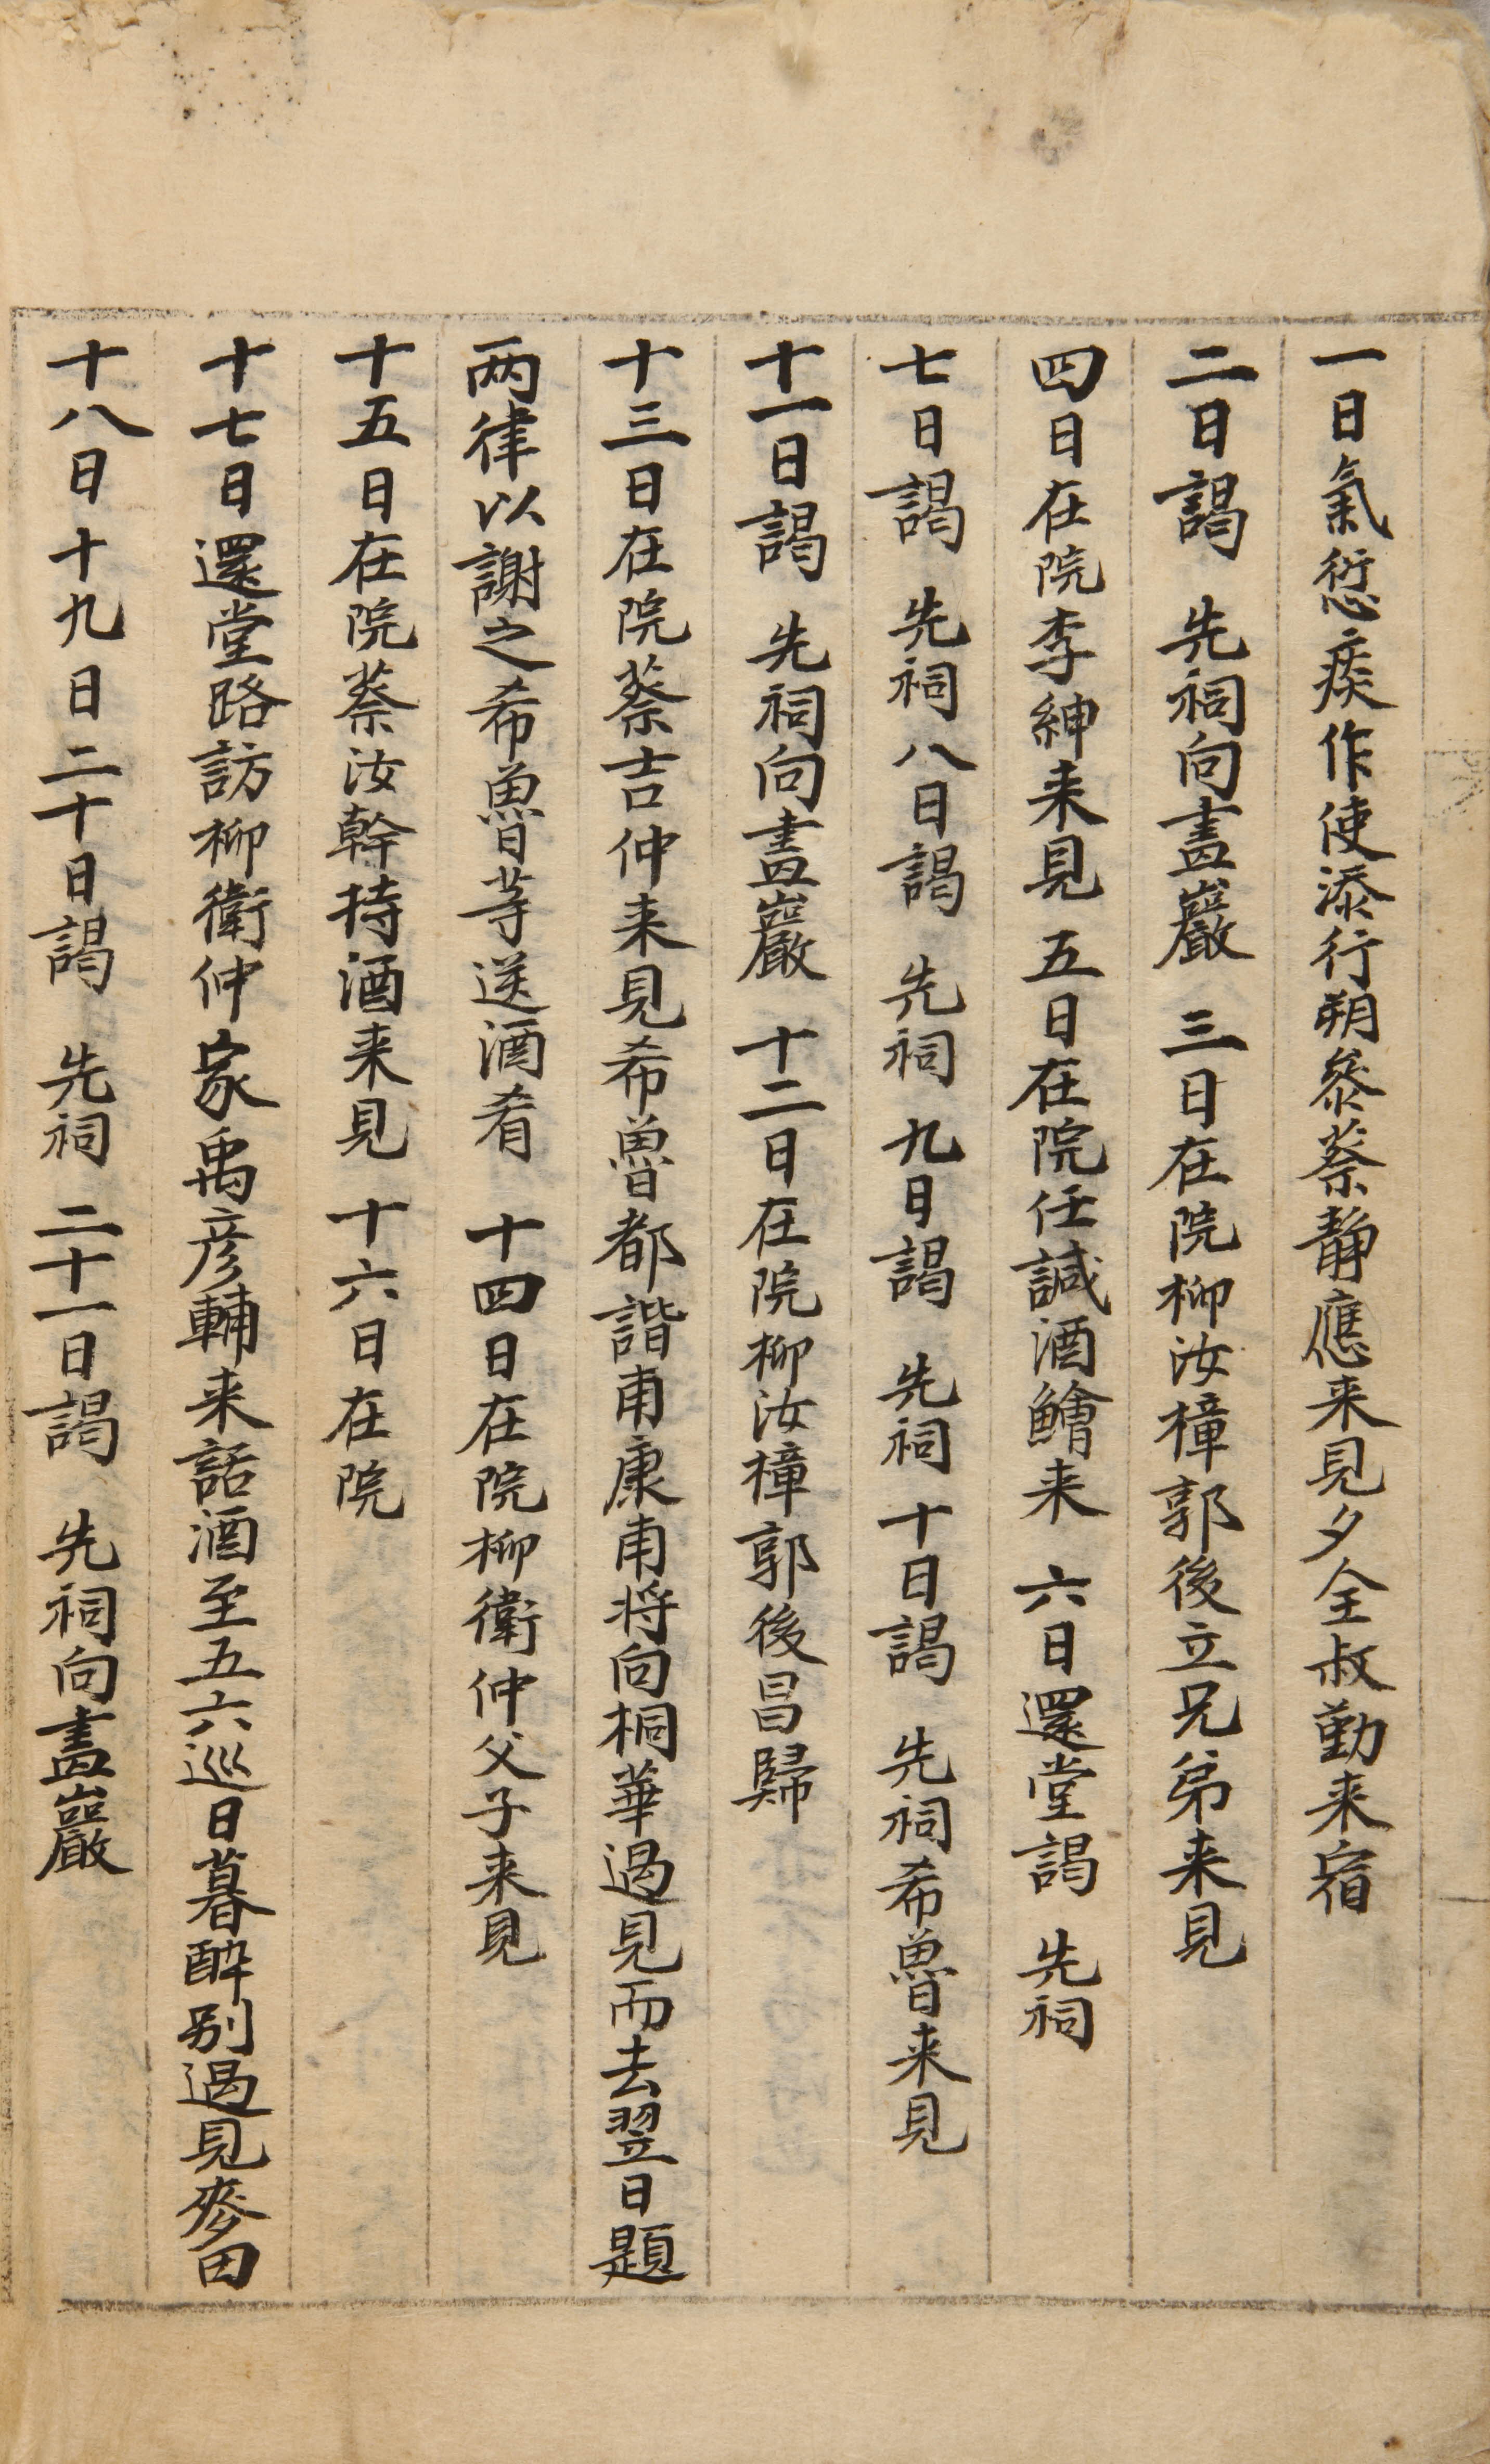 一日氣愆痰作使添行朔叅蔡靜應来見夕全叔勤来宿
二日謁 先祠向晝巖 三日在院柳汝樟郭後立兄弟来見
四日在院李紳来見 五日在院任諴酒鱠来 六日還堂謁 先祠
七日謁 先祠 八日謁 先祠 九日謁 先祠 十日謁 先祠希魯来見
十一日謁 先祠向晝巖 十二日在院柳汝樟郭後昌歸
十三日在院蔡吉仲来見希魯都諧甫康甫将向桐華過見而去翌日題
两律以謝之希魯等送酒肴 十四日在院柳衛仲父子来見
十五日在院蔡汝幹持酒来見 十六日在院
十七日還堂路訪柳衛仲家禹彦輔来話酒至五六巡日暮酔别過見麥田
十八日十九日二十日謁 先祠 二十一日謁 先祠向晝巖